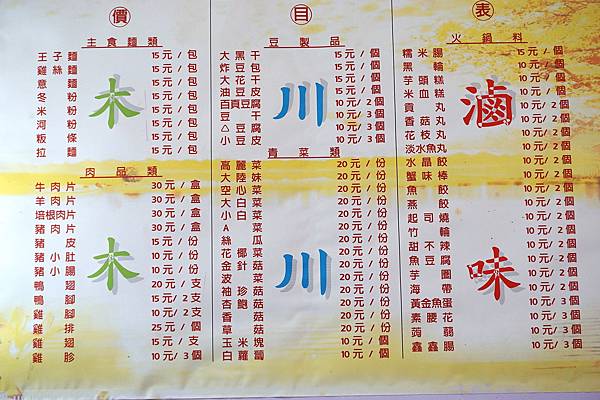 價目表
木木川川滷味
主食麵類
王子麵 15元/包
雞絲麵 15元/包
意麵 15元/包
冬粉 15元/包
米粉 15元/包
河粉 15元/包
粄條 15元/包
拉麵 15元/包
肉品類
牛肉片 30元/盒
羊肉片 30元/盒
培根肉片 30元/盒
豬肉片 30元/盒
豬皮 15元/份
豬小肚 10元/份
豬小腸 10元/份
鴨翅 20元/支
鴨腳 15元/2支
雞腳 10元/2支
雞排 25元/個
雞翅 15元/支
雞胗 10元/3個
豆製品
大黑干 15元/個
炸豆包 15元/個
大花干 15元/個
油豆皮 15元/個
百頁豆腐 10元/2個
豆干 10元/3個
△豆腐 10元/2個
小豆皮 10元/3個
青菜類
高麗菜 20元/份
大陸妹 20元/份
空心菜 20元/份
大白菜 20元/份
小白菜 20元/份
A菜 20元/份
絲瓜 20元/份
花椰菜 20元/份
金針菇 20元/份
袖珍菇 20元/份
杏鮑菇 20元/份
香菇
草菇
玉米塊 10元/個
白蘿蔔 10元/個
火鍋料
糯米腸 15元/個
黑輪 15元/個
芋頭糕 15元/個
米血糕 15元/個
貢丸 10元/2個
香菇丸 10元/2個
花枝丸 10元/2個
淡水魚丸 10元/2個
水晶餃 10元/2個
蟹味棒 10元/2個
魚餃 10元/2個
燕餃 10元/2個
起司燒 10元/2個
竹輪 10元/2個
甜不辣 10元/2個
魚豆腐 10元/2個
芋圈 10元/2個
海帶
黃金魚蛋 10元/3個
素腰花 10元/2個
蒟蒻
鑫鑫腸 10元/3個